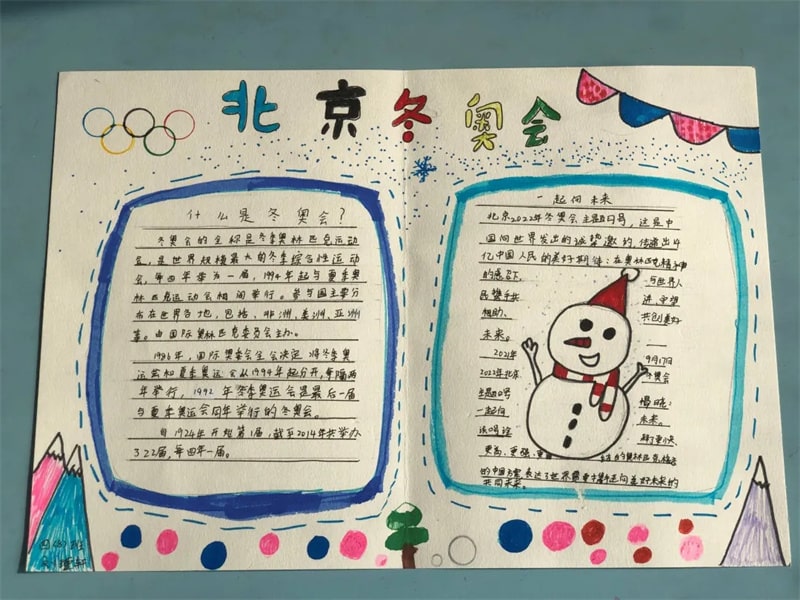 北京冬奥会
什么是冬奥会？
冬奥会的全称是冬季奥林匹克运动
会，是世界规模最大的冬季综合性运动
会，每四年举办一届，1994年起与夏季奥
林匹克运动会相间举行。参与国主要分
布在世界各地，包括，非洲、美洲、亚洲
等。由国际奥林匹克委员会主办。
1986年，国际奥委会全会决定将冬季奥
运会和夏季奥运会从1994年起分开，每隔两
年举行，1992年冬季奥运会是最后一届
与夏季奥运会同年举行的冬奥会。
自1924年开始第1届，截至2014年共举办
322届，每四年一届。
一起向未来
北京2022年冬奥会主题口号，这是中
国向世界发出的诚挚邀约，传递出14
亿中国人民的美好期待：在奥林匹克精神
的感召下，与世界人
民携手共进，守望
相助、共创美好
未来。
2021年 9月17日
2022年北京 冬奥会
主题口号
一起向 未来。
更快
更高、更强、更
的中国方案表达了世界需要携手走向美好未来的
共同未来。